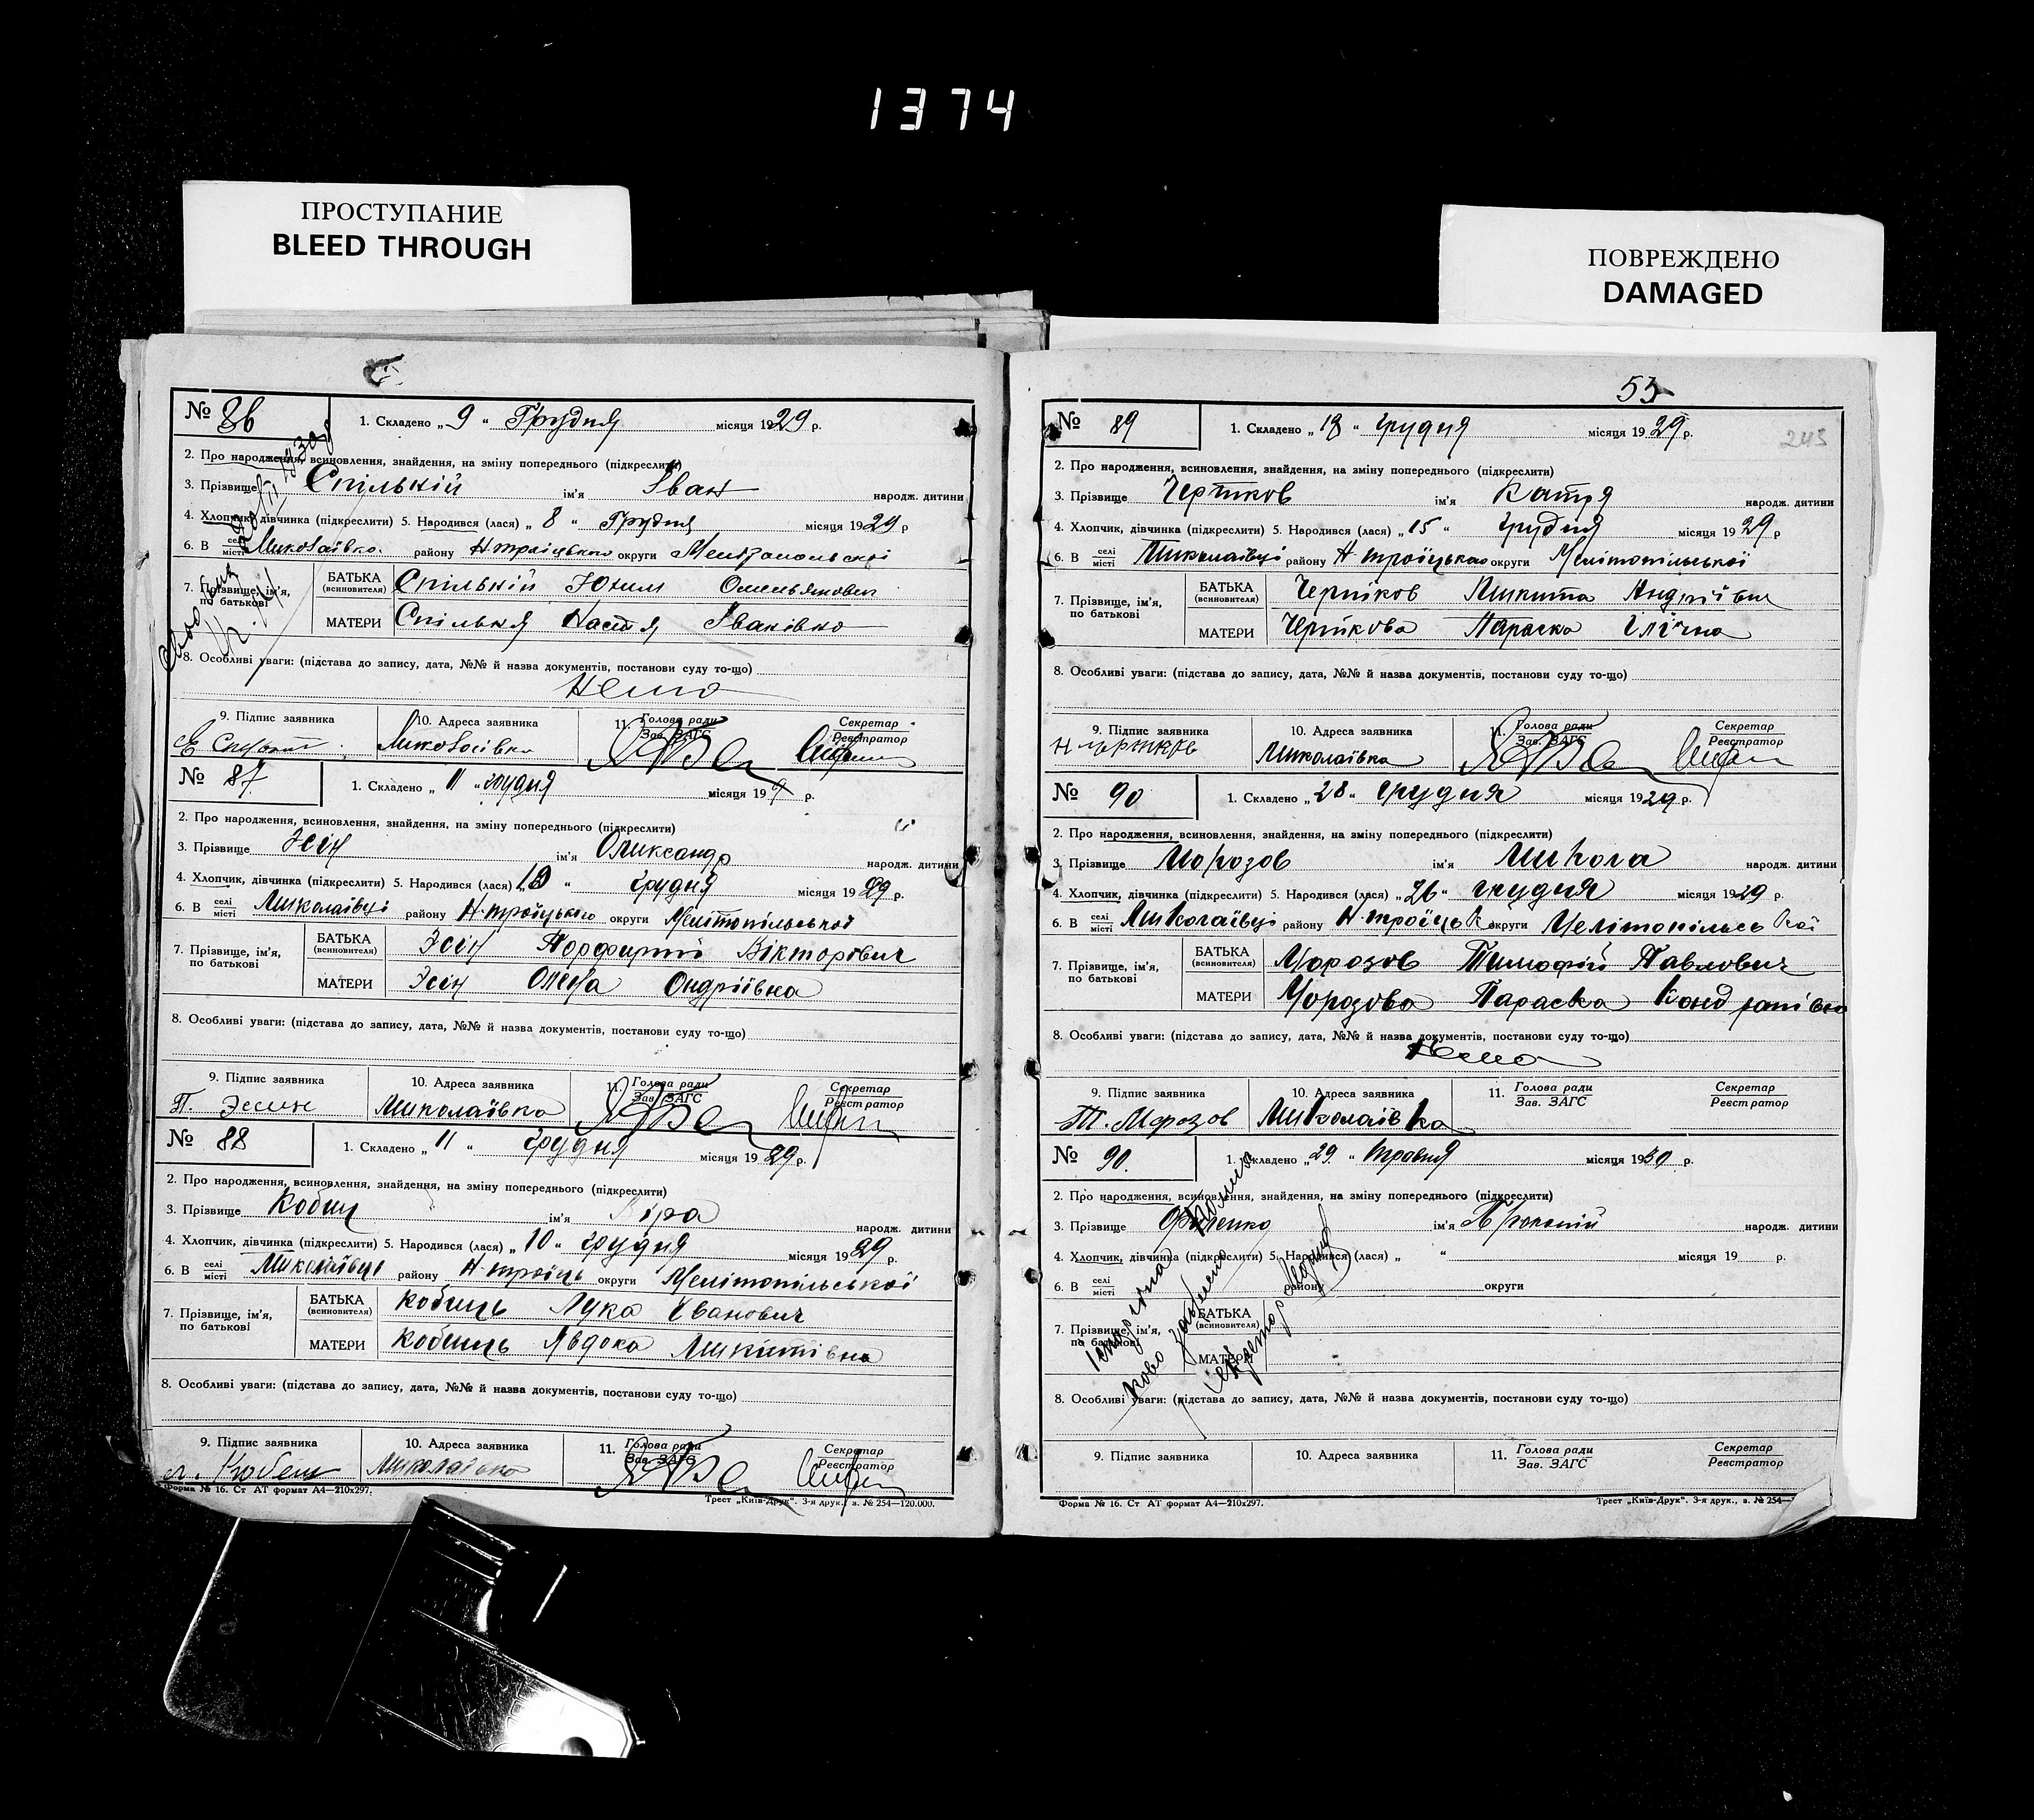 1374
ПРОСТУПАНИЕ
BLEED THROUGH
ПОВРЕЖДЕНО
DAMAGED
№ 86 1. Складено „ 9 “ Грудня місяця 1929 р.
2. Про народження, всиновлення, знайдення, на зміну попереднього (підкреслити)
3. Прізвище Спільній ім'я Іван народж. дитини
4. Хлопчик, дівчинка (підкреслити) 5. Народився (лася) „ 8 “ Грудня місяця 1929 р
6. В селі місті Миколаївко району Н троіцького округи
7. Прізвище, ім'я, по батькові БАТЬКА (всиновителя) Спільній Юхим Омельянович
МАТЕРИ Спільня Настя Іванівно
8. Особливі уваги: (підстава до запису, дата, №№ й назва документів, постанови суду то-що)
Нема
9. Підпис заявника 10. Адреса заявника 11. Голова ради Зав. ЗАГС Секретар Реєстратор
№ 87 1. Складено „ 11 “ грудня місяця 19 р.
2. Про народження, всиновлення, знайдення, на зміну попереднього (підкреслити)
3. Прізвище Эсін ім'я Олександр народж. дитини
4. Хлопчик, дівчинка (підкреслити) 5. Народився (лася) 10 “ грудня місяця 1929 р.
6. В селі місті Миколаївці району Н-троїцького округи Мелітопільської
7. Прізвище, ім'я, по батькові БАТЬКА (всиновителя) Эсін Порфирій Вікторович
МАТЕРИ Эсін Олена Ондріївна
8. Особливі уваги: (підстава до запису, дата, №№ й назва документів, постанови суду то-що)
9. Підпис заявника 10. Адреса заявника 11. Голова ради Зав. ЗАГС Секретар Реєстратор
П. Эсин Миколаївка
№ 88 1. Складено „ 11 “ грудня місяця 1929 р.
2. Про народження, всиновлення, знайдення, на зміну попереднього (підкреслити)
3. Прізвище Кобиц ім'я Віра народж. дитини
4. Хлопчик, дівчинка (підкреслити) 5. Народився (лася) „ 10 “ грудня місяця 1929 р.
6. В селі місті Миколаївці району Н-троїць округи Мелітопільської
7. Прізвище, ім'я, по батькові БАТЬКА (всиновителя) Кобиць Лука Іванович
МАТЕРИ Кобиць Явдока Микитівна
8. Особливі уваги: (підстава до запису, дата, №№ й назва документів, постанови суду то-що)
9. Підпис заявника 10. Адреса заявника 11. Голова ради Зав. ЗАГС Секретар Реєстратор
Миколаївка
Форма № 16. Ст АТ формат А4—210х297. Трест „Київ-Друк“. 3-я друк., з. № 254—120.000.
53
243
№ 89 1. Складено „ 18 “ грудня місяця 1929 р.
2. Про народження, всиновлення, знайдення, на зміну попереднього (підкреслити)
3. Прізвище Чертков ім'я Катря народж. дитини
4. Хлопчик, дівчинка (підкреслити) 5. Народився (лася) „ 15 “ грудня місяця 1929 р
6. В селі місті Миколаївці району Н троїцького округи Мелітопільської
7. Прізвище, ім'я, по батькові БАТЬКА (всиновителя) Чертков Микита Андріївич
МАТЕРИ Черткова Параска Ілічна
8. Особливі уваги: (підстава до запису, дата, №№ й назва документів, постанови суду то-що)
9. Підпис заявника 10. Адреса заявника 11. Голова ради Зав. ЗАГС Секретар Реєстратор
Миколаївка
№ 90 1. Складено „ 28 “ грудня місяця 1929 р.
2. Про народження, всиновлення, знайдення, на зміну попереднього (підкреслити)
3. Прізвище Морозов ім'я Микола народж. дитини
4. Хлопчик, дівчинка (підкреслити) 5. Народився (лася) „ 26 “ грудня місяця 1929 р.
6. В селі місті Миколаївці району Н-троїцьк округи Мелітопільської
7. Прізвище, ім'я, по батькові БАТЬКА (всиновителя) Морозов Тимофій Павлович
МАТЕРИ Морозова Параска Кондратівна
8. Особливі уваги: (підстава до запису, дата, №№ й назва документів, постанови суду то-що)
Нема
9. Підпис заявника 10. Адреса заявника 11. Голова ради Зав. ЗАГС Секретар Реєстратор
Т. Морозов Миколаївка
№ 90. 1. Складено „ 29 “ травня місяця 1930 р.
2. Про народження, всиновлення, знайдення, на зміну попереднього (підкреслити)
3. Прізвище ім'я Прокопій народж. дитини
4. Хлопчик, дівчинка (підкреслити) 5. Народився (лася) „ “ місяця 19 р.
6. В селі місті району округи
7. Прізвище, ім'я, по батькові БАТЬКА (всиновителя)
МАТЕРИ
8. Особливі уваги: (підстава до запису, дата, №№ й назва документів, постанови суду то-що)
9. Підпис заявника 10. Адреса заявника 11. Голова ради Зав. ЗАГС Секретар Реєстратор
Форма № 16. Ст АТ формат А4—210х297. Трест „Київ-Друк“. 3-я друк., з. № 254—